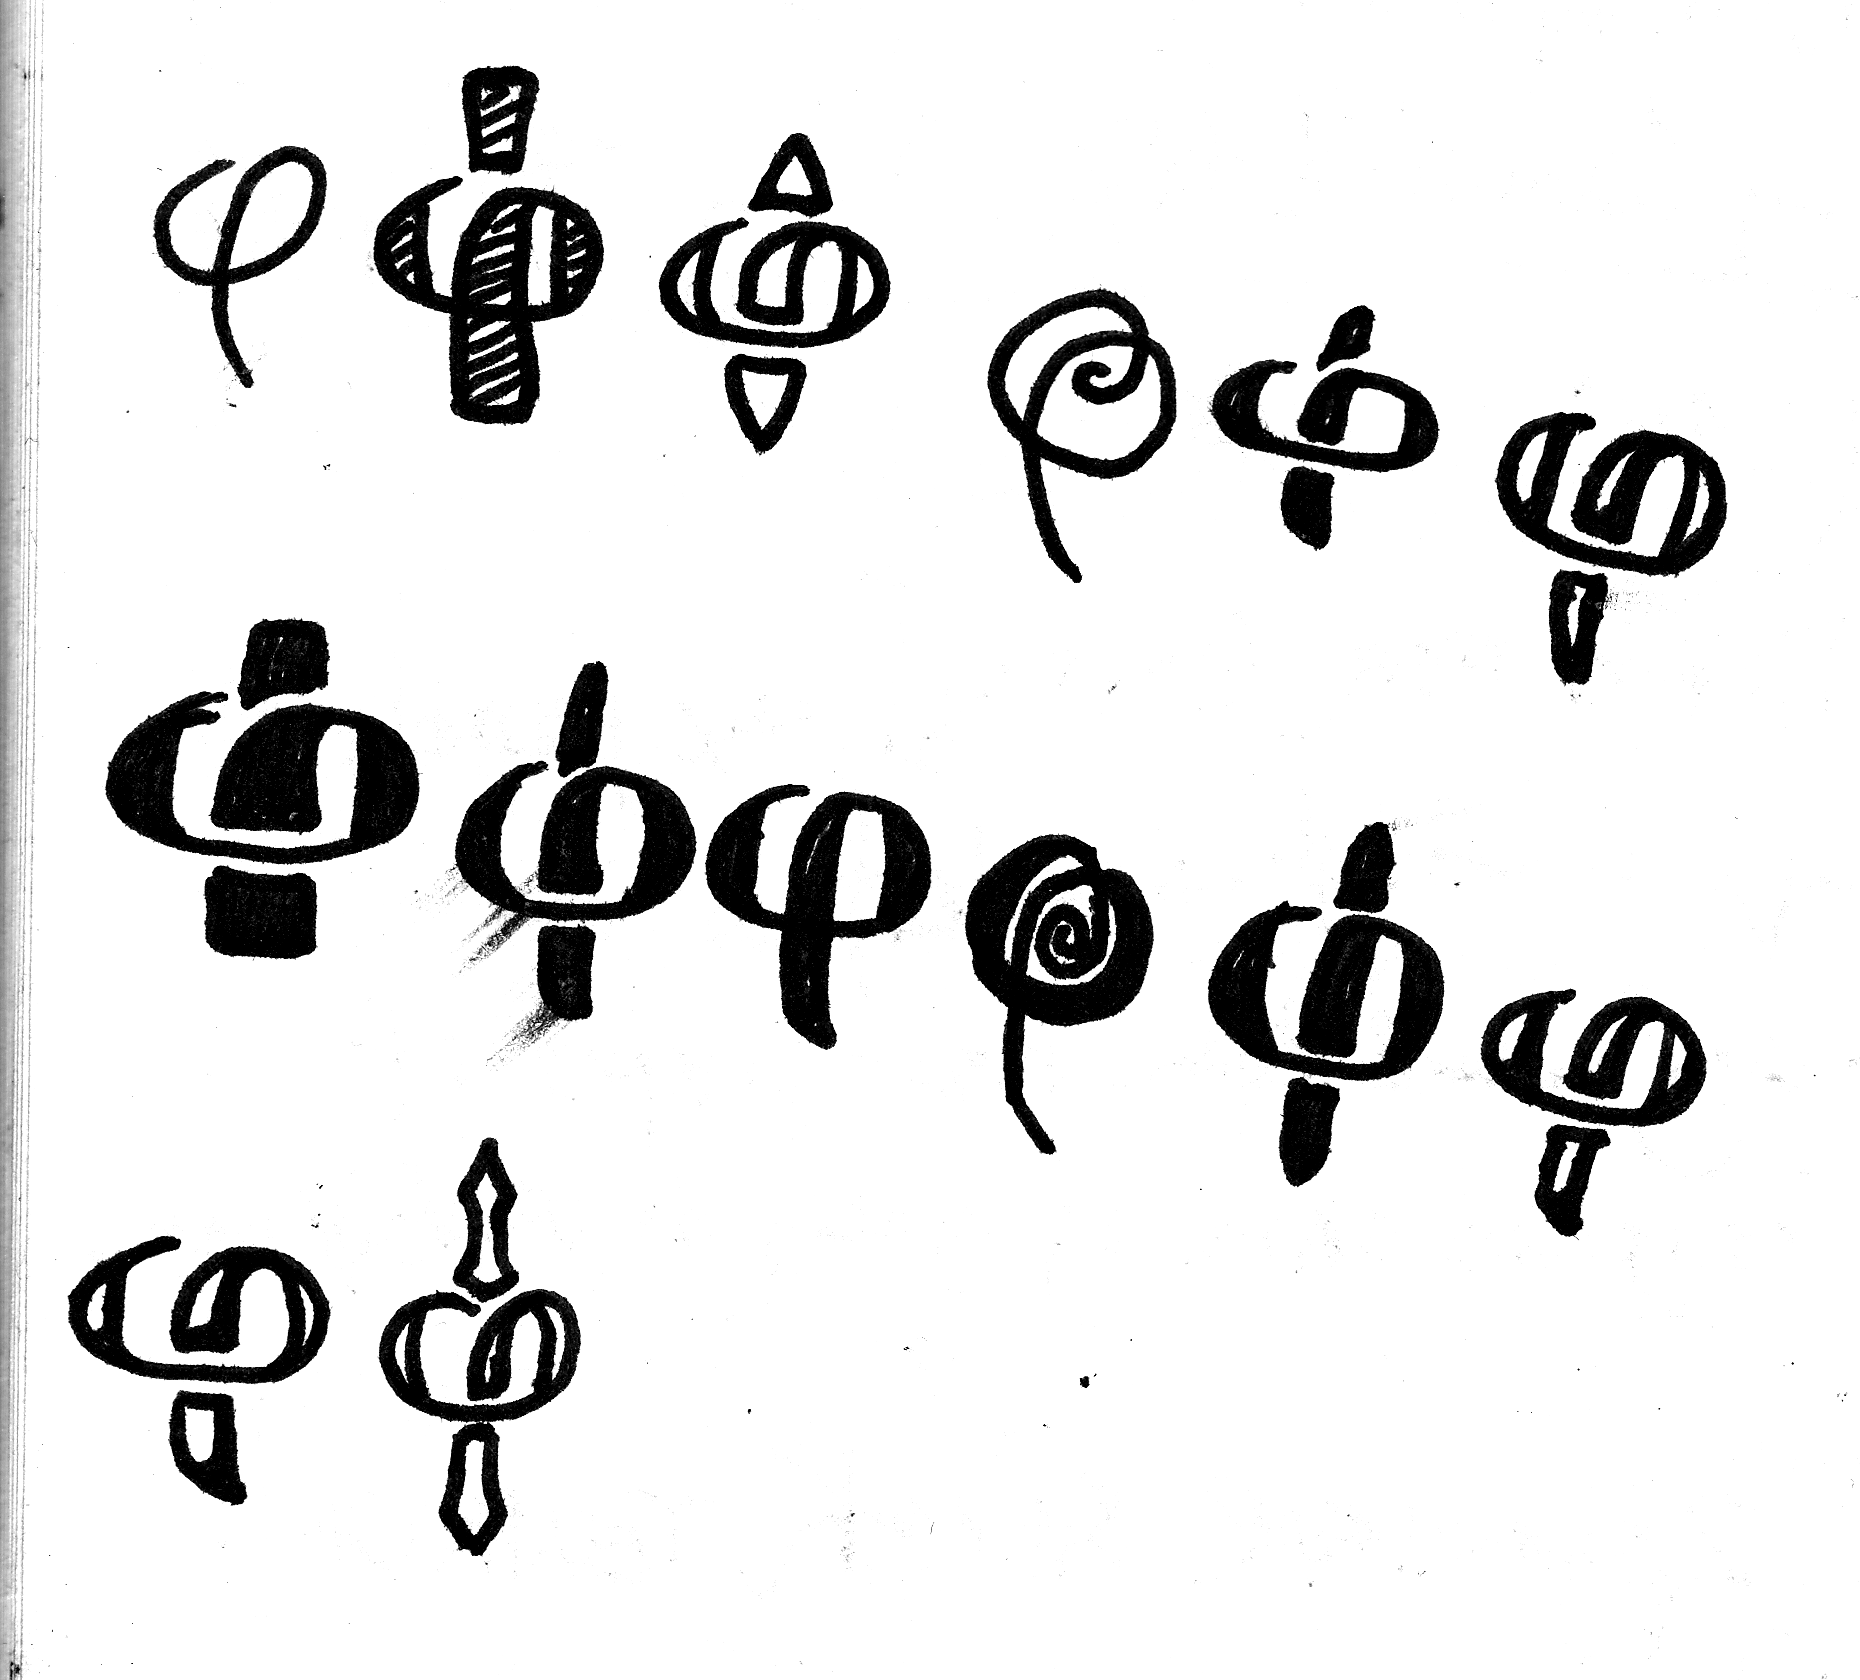 φ φ φ φ φ φ
φ φ φ φ φ φ
φ φ